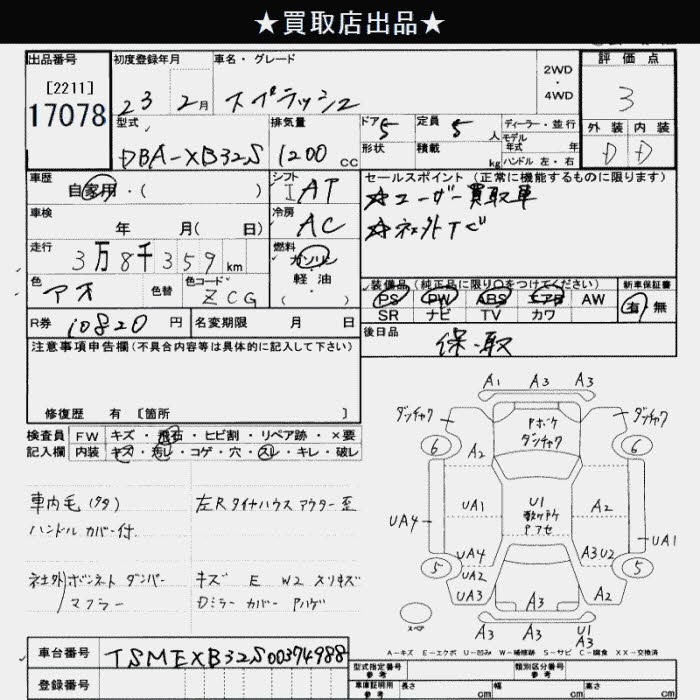 ★買取店出品★
出品番号
[2211]
17078
初度登録年月
23年 2月
車名・グレード
スプラッシュ
2WD
・
4WD
評価点
3
型式
DBA-XB32S
排気量
1200 CC
ドア 5
形状
定員 5 人
積載 kg
ディーラー・並行
モデル年式 年
ハンドル 左・右
外装 内装
D D
車歴
自家用・( )
シフト
I AT
セールスポイント (正常に機能するものに限ります)
☆ユーザー買取車
☆社外TV
車検
年 月( 日)
冷房
AC
走行
3万8千359 km
燃料
ガソリン
軽油
( ・ )
色
アオ
色替
色コード
ZCG
装備品(純正品に限り○をつけてください)
PS PW ABS エアB AW
SR ナビ TV カワ
新車保証書
有 無
R券 10820 円
名変期限 月 日
後日品
保・取
注意事項申告欄(不具合内容等は具体的に記入して下さい)
修復歴 有 [箇所 ]
検査員記入欄
FW キズ・飛石・ヒビ割・リペア跡・×要
内装 キズ・汚レ・コゲ・穴・スレ・キレ・破レ
車内毛(タタ)
ハンドルカバー付
社外ボンネットダンパー
マフラー
左Rタイヤハウスアウター歪
キズ E W2 スリキズ
Dミラーカバー Pハゲ
A1 A3 A3
ダンチャク
Pボケ
ダンチャク
ダンチャク
6 6
A2
UA1
U1
数ヶ所
Pアセ
A2
UA4
UA1
UA4
A3U2
5 5
UA2
UA3
A3
A2
スペア
A3 A3 U1 A3
A-キズ E-エクボ U-凹み W-補修跡 S-サビ C-腐食 XX-交換済
車台番号
TSMEXB32S00374988
登録番号
型式指定番号 参考
類別区分番号 参考
車庫証明用 参考
長さ cm
幅 cm
高さ cm